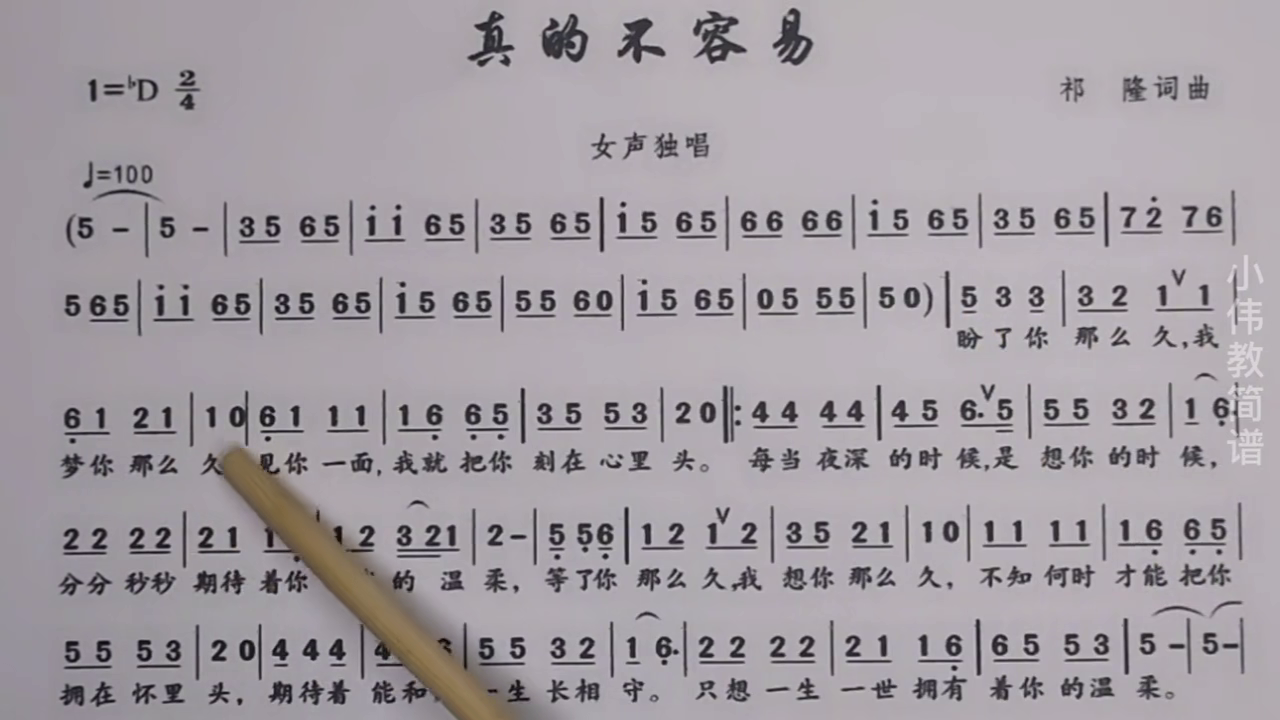 真的不容易
1=♭D 2/4
祁 隆词曲
女声独唱
♩=100
(5 - | 5 - | 35 65 | i i 65 | 35 65 | i5 65 | 66 66 | i5 65 | 35 65 | 72̇ 76 |
565 | i i 65 | 35 65 | i5 65 | 55 60 | i5 65 | 05 55 | 50) | 5 3 3 | 3 2 1 V 1
盼了你 那么 久,我
6̣1 21 | 10 | 6̣1 11 | 16̣ 6̣5̣ | 35 53 | 20 ‖: 44 44 | 45 6. V 5 | 55 32 | 1 6̣.
梦你 那么 久 见你 一面,我就 把你 刻在 心里 头。 每当 夜深 的时 候,是 想你 的时 候,
22 22 | 21 1 | 12 3 21 | 2- | 5̣ 5̣6̣ | 12 1 V 2 | 35 21 | 10 | 11 11 | 16̣ 6̣5̣ |
分分 秒秒 期待 着你 的 温 柔, 等了你 那么 久,我 想你 那么 久, 不知 何时 才能 把你
55 53 | 20 | 4 4 4 | 4 | 55 32 | 1 6̣. | 22 22 | 21 16̣ | 65 53 | 5 - | 5- |
拥在 怀里 头, 期待着 能和 一生 长相 守。 只想 一生 一世 拥有 着你 的温 柔。
小伟教简谱